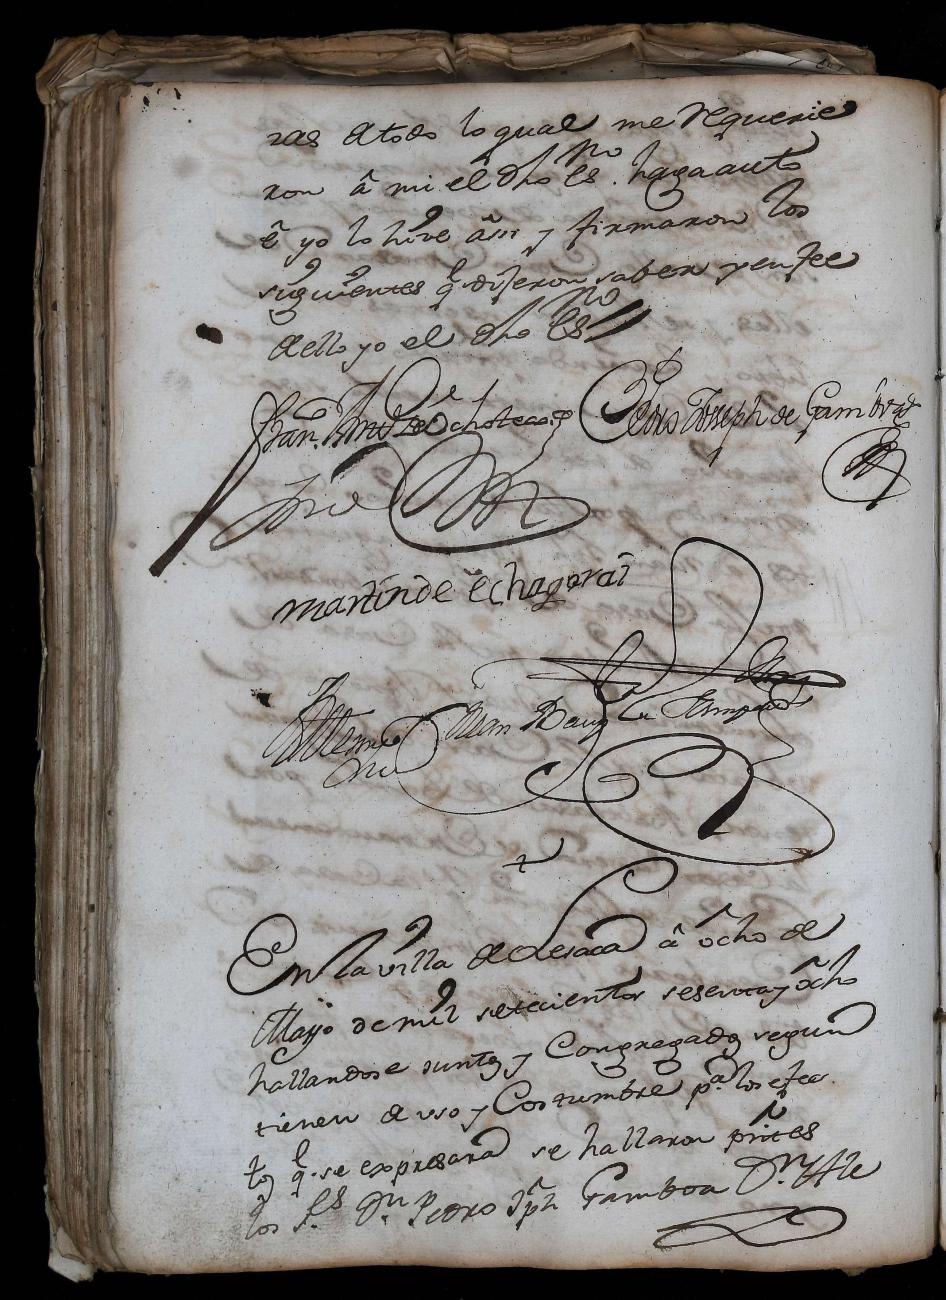 ras a todo lo qual me requerie
ron â mi el dho es.no haga auto
ê yo lo hize âsi y firmaron los
siguientes q.e dijeron saber y en fee
de ello yo el dho es.no
Fran.co Ant.o de Ochoteco Pedro Joseph de Gamboa
martin de echagarai
Ante mi Juan Baup.ta Sampaul
En la villa de Lesaca â ôcho de
Mayo de mil setecientos sesenta y ôcho
hallandose juntos y Congregados segun
tienen de uso y Costumbre p.a los efec
tos q.e se expresara se hallaron prntes
los S.res D.n Pedro Jph Gamboa D.n